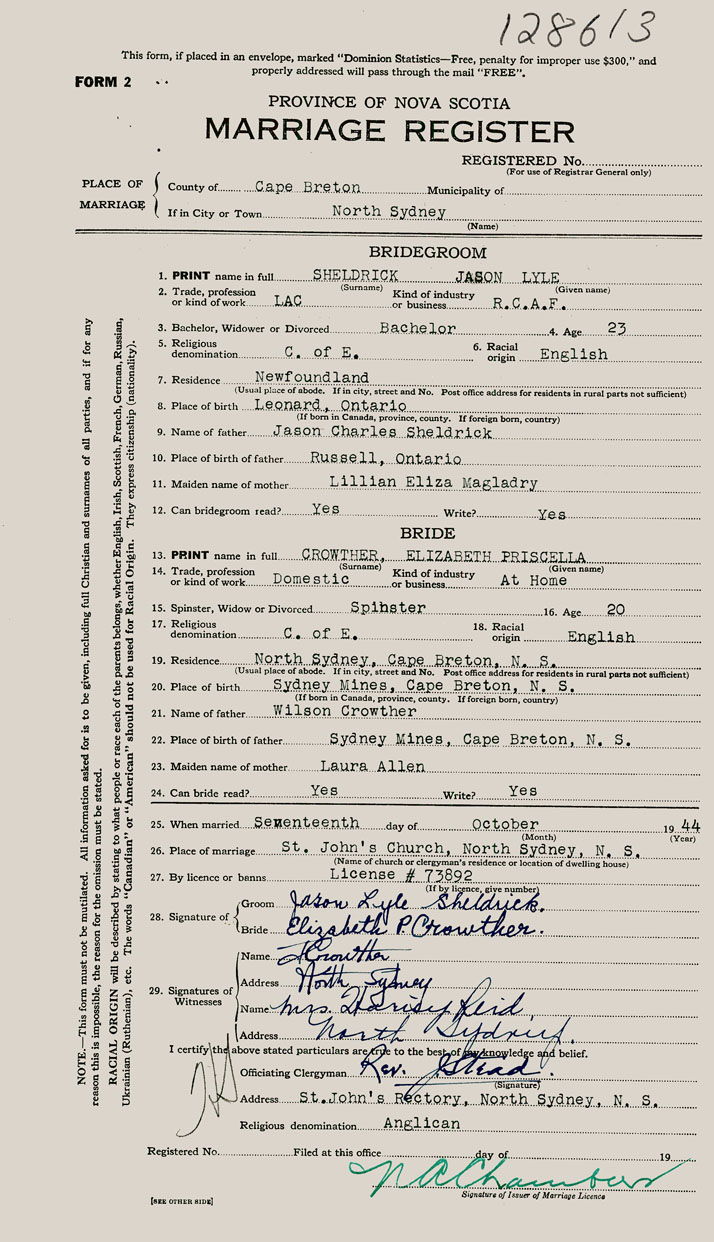 128613
This form, if placed in an envelope, marked "Dominion Statistics—Free, penalty for improper use $300," and
properly addressed will pass through the mail "FREE".
FORM 2
PROVINCE OF NOVA SCOTIA
MARRIAGE REGISTER
REGISTERED No.
(For use of Registrar General only)
PLACE OF MARRIAGE
County of Cape Breton Municipality of
If in City or Town North Sydney
(Name)
BRIDEGROOM
1. PRINT name in full SHELDRICK JASON LYLE
(Surname) (Given name)
2. Trade, profession or kind of work LAC Kind of industry or business R.C.A.F.
3. Bachelor, Widower or Divorced Bachelor 4. Age 23
5. Religious denomination C. of E. 6. Racial origin English
7. Residence Newfoundland
(Usual place of abode. If in city, street and No. Post office address for residents in rural parts not sufficient)
8. Place of birth Leonard, Ontario
(If born in Canada, province, county. If foreign born, country)
9. Name of father Jason Charles Sheldrick
10. Place of birth of father Russell, Ontario
11. Maiden name of mother Lillian Eliza Magladry
12. Can bridegroom read? Yes Write? Yes
BRIDE
13. PRINT name in full CROWTHER, ELIZABETH PRISCELLA
(Surname) (Given name)
14. Trade, profession or kind of work Domestic Kind of industry or business At Home
15. Spinster, Widow or Divorced Spihster 16. Age 20
17. Religious denomination C. of E. 18. Racial origin English
19. Residence North Sydney, Cape Breton, N. S.
(Usual place of abode. If in city, street and No. Post office address for residents in rural parts not sufficient)
20. Place of birth Sydney Mines, Cape Breton, N. S.
(If born in Canada, province, county. If foreign born, country)
21. Name of father Wilson Crowther
22. Place of birth of father Sydney Mines, Cape Breton, N. S.
23. Maiden name of mother Laura Allen
24. Can bride read? Yes Write? Yes
25. When married Seventeenth day of October 1944
(Month) (Year)
26. Place of marriage St. John's Church, North Sydney, N. S.
(Name of church or clergyman's residence or location of dwelling house)
27. By licence or banns License # 73892
(If by licence, give number)
28. Signature of
Groom Jason Lyle Sheldrick.
Bride Elizabeth P. Crowther.
29. Signatures of Witnesses
Name Crowther
Address North Sydney
Name Mrs. Reid
Address North Sydney.
I certify the above stated particulars are true to the best of my knowledge and belief.
Officiating Clergyman Rev. J Stead.
(Signature)
Address St.John's Rectory, North Sydney, N. S.
Religious denomination Anglican
Registered No. Filed at this office day of 19
N A Chambers
Signature of Issuer of Marriage Licence
[SEE OTHER SIDE]
NOTE.—This form must not be mutilated. All information asked for is to be given, including full Christian and surnames of all parties, and if for any
reason this is impossible, the reason for the omission must be stated.
RACIAL ORIGIN will be described by stating to what people or race each of the parents belongs, whether English, Irish, Scottish, French, German, Russian,
Ukrainian (Ruthenian), etc. The words "Canadian" or "American" should not be used for Racial Origin. They express citizenship (nationality).